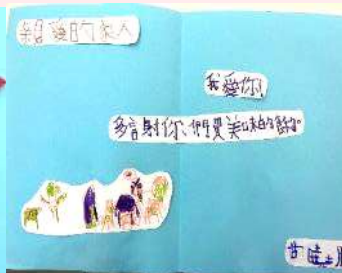 親愛的家人
我愛你！
多謝你們煲美味的餸。